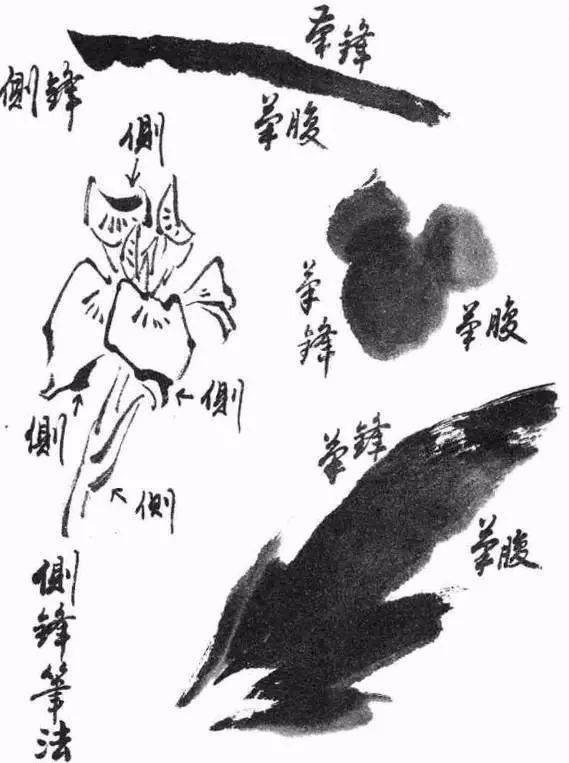 筆鋒
側鋒
筆腹
側
筆鋒
筆腹
側
側
筆鋒
側
筆腹
側鋒筆法